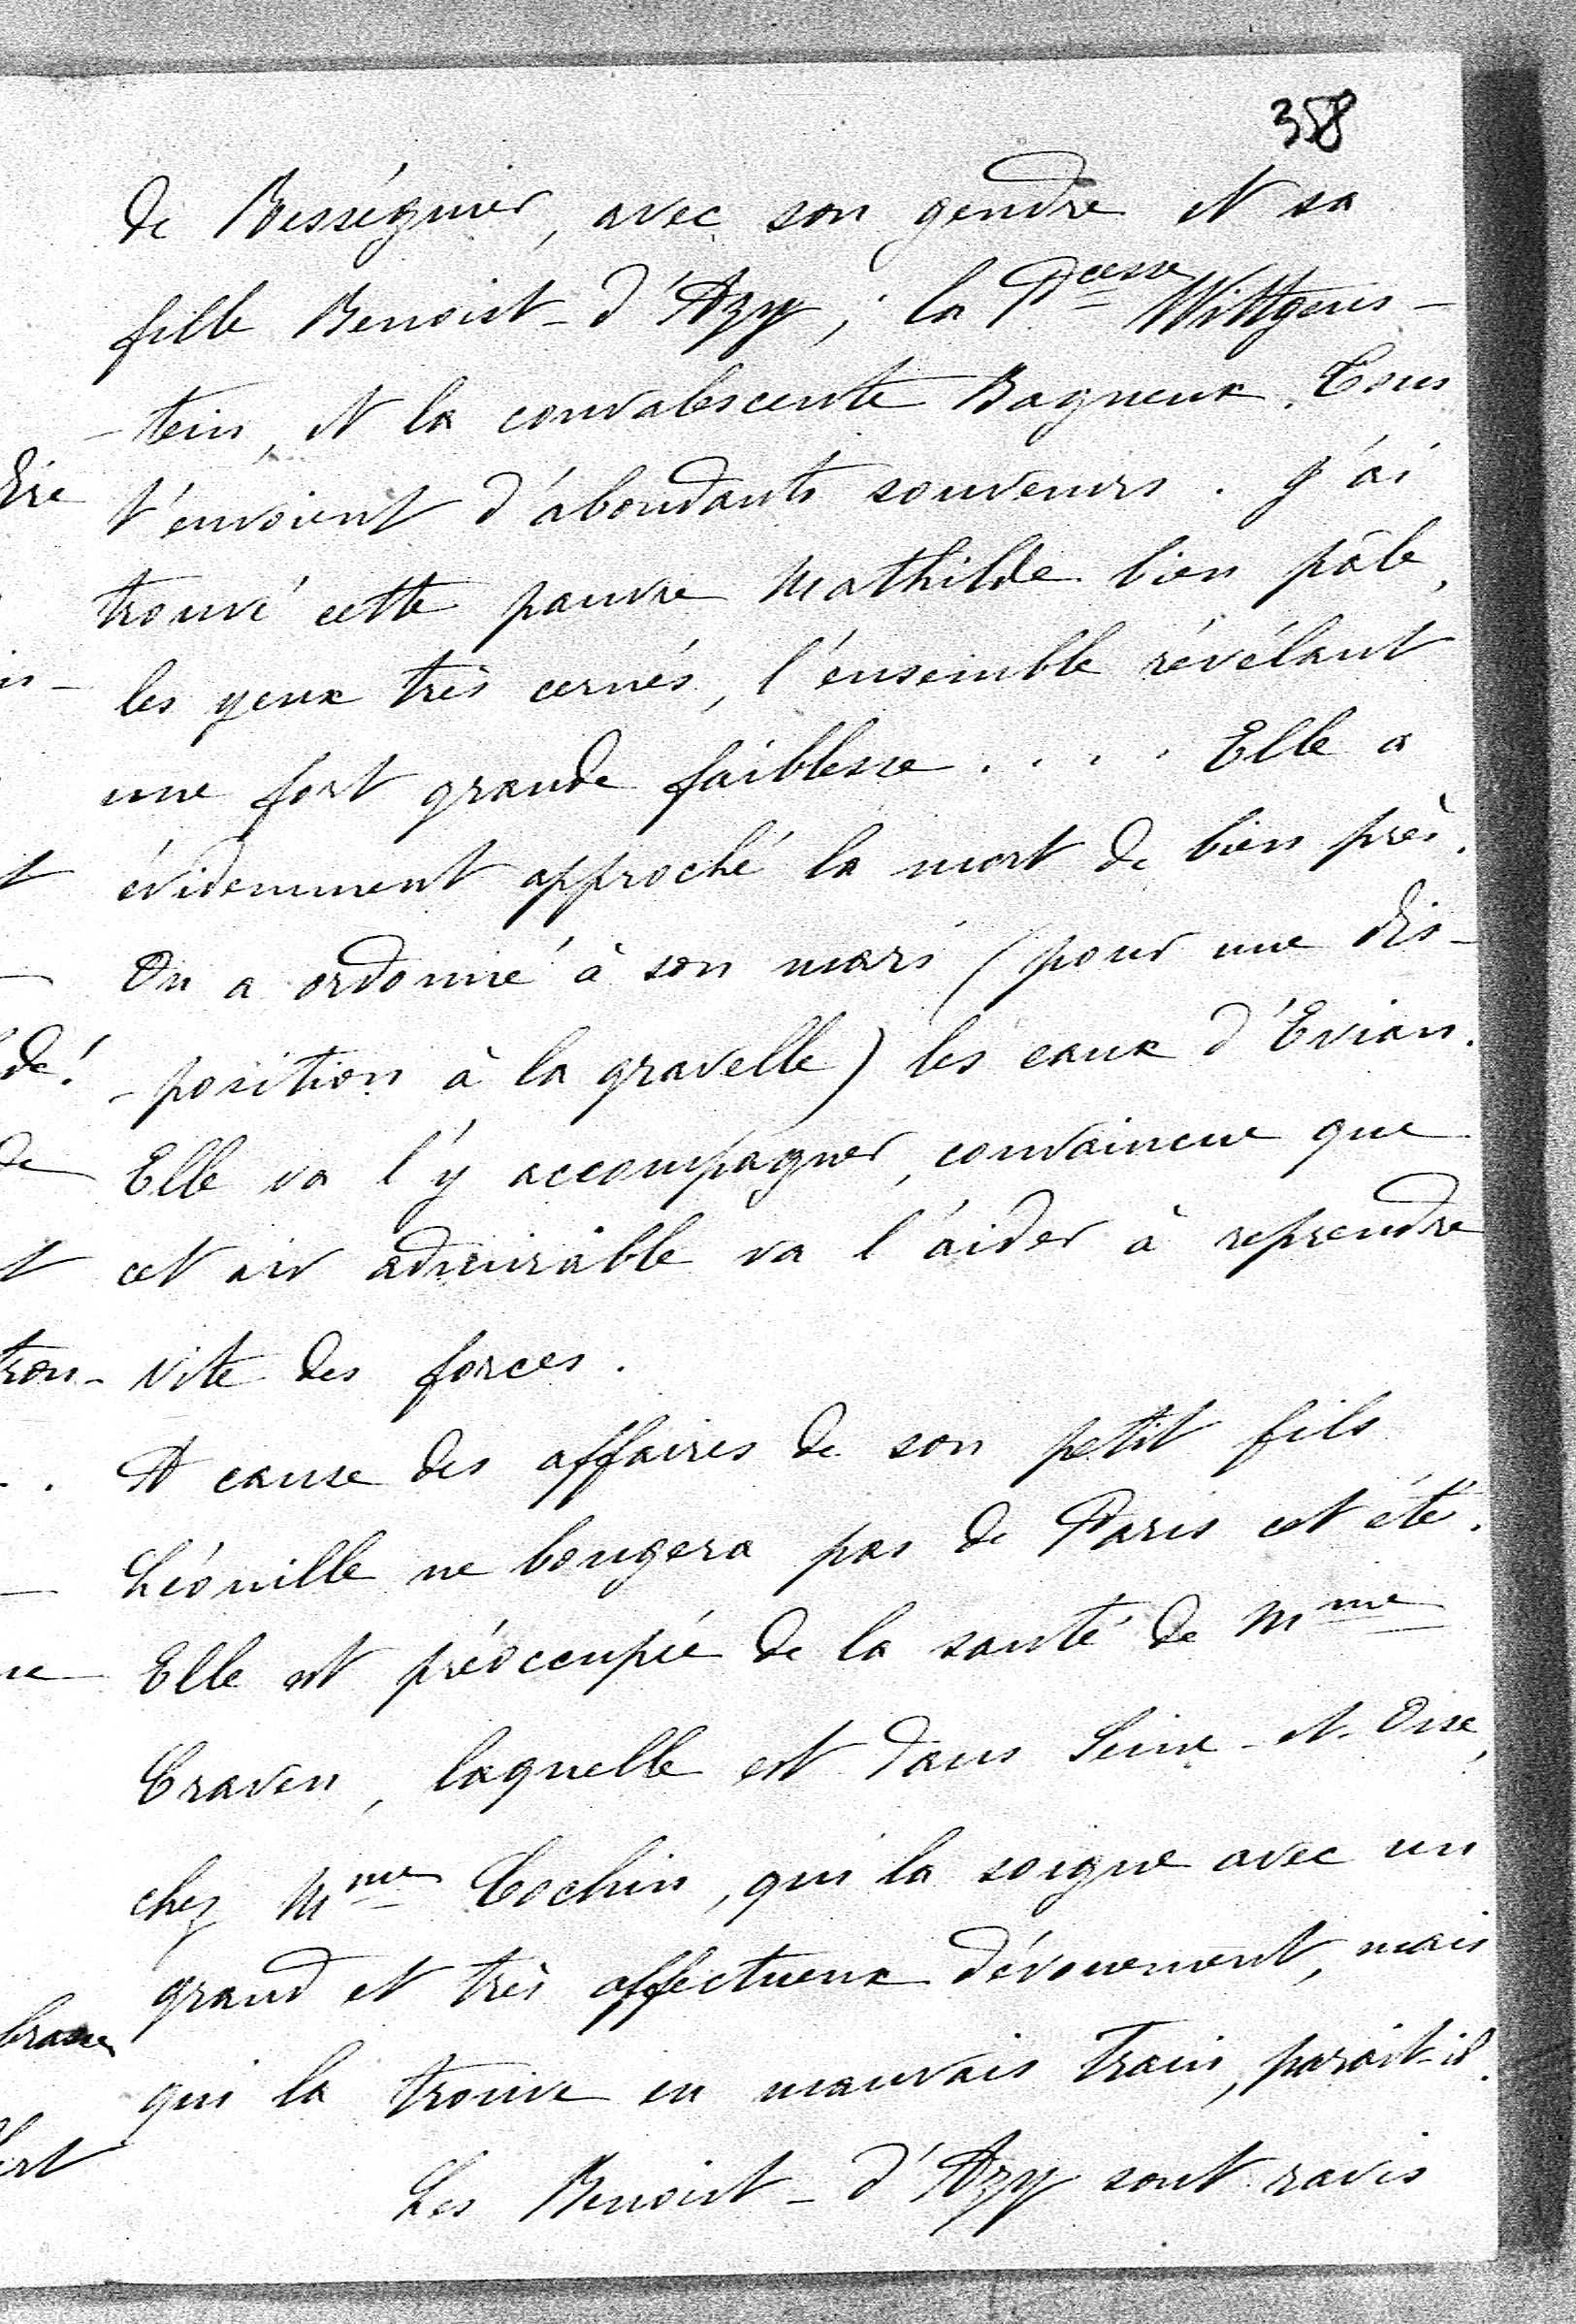 358
de Rességuier, avec son gendre et sa
fille Benoist-d'Azy ; la Pcesse Wittgens-
-tein, et la convalescente Bagneux. Tous
t'envoient d'abondants souvenirs. J'ai
trouvé cette pauvre Mathilde bien pâle,
les yeux très cernés, l'ensemble révélant
une fort grande faiblesse.... Elle a
évidemment approché la mort de bien près.
On a ordonné à son mari (pour une dis-
-position à la gravelle) les eaux d'Evian.
Elle va l'y accompagner, convaincue que
cet air admirable va l'aider à reprendre
vite des forces.
A cause des affaires de son petit fils
Léonille ne bougera pas de Paris cet été.
Elle est préoccupée de la santé de Mme
Craven, laquelle est dans Seine-et-Oise,
chez Mme Cochin, qui la soigne avec un
grand et très affectueux dévouement, mais
qui la trouve en mauvais train, parait-il.
Les Benoist-d'Azy sont ravis